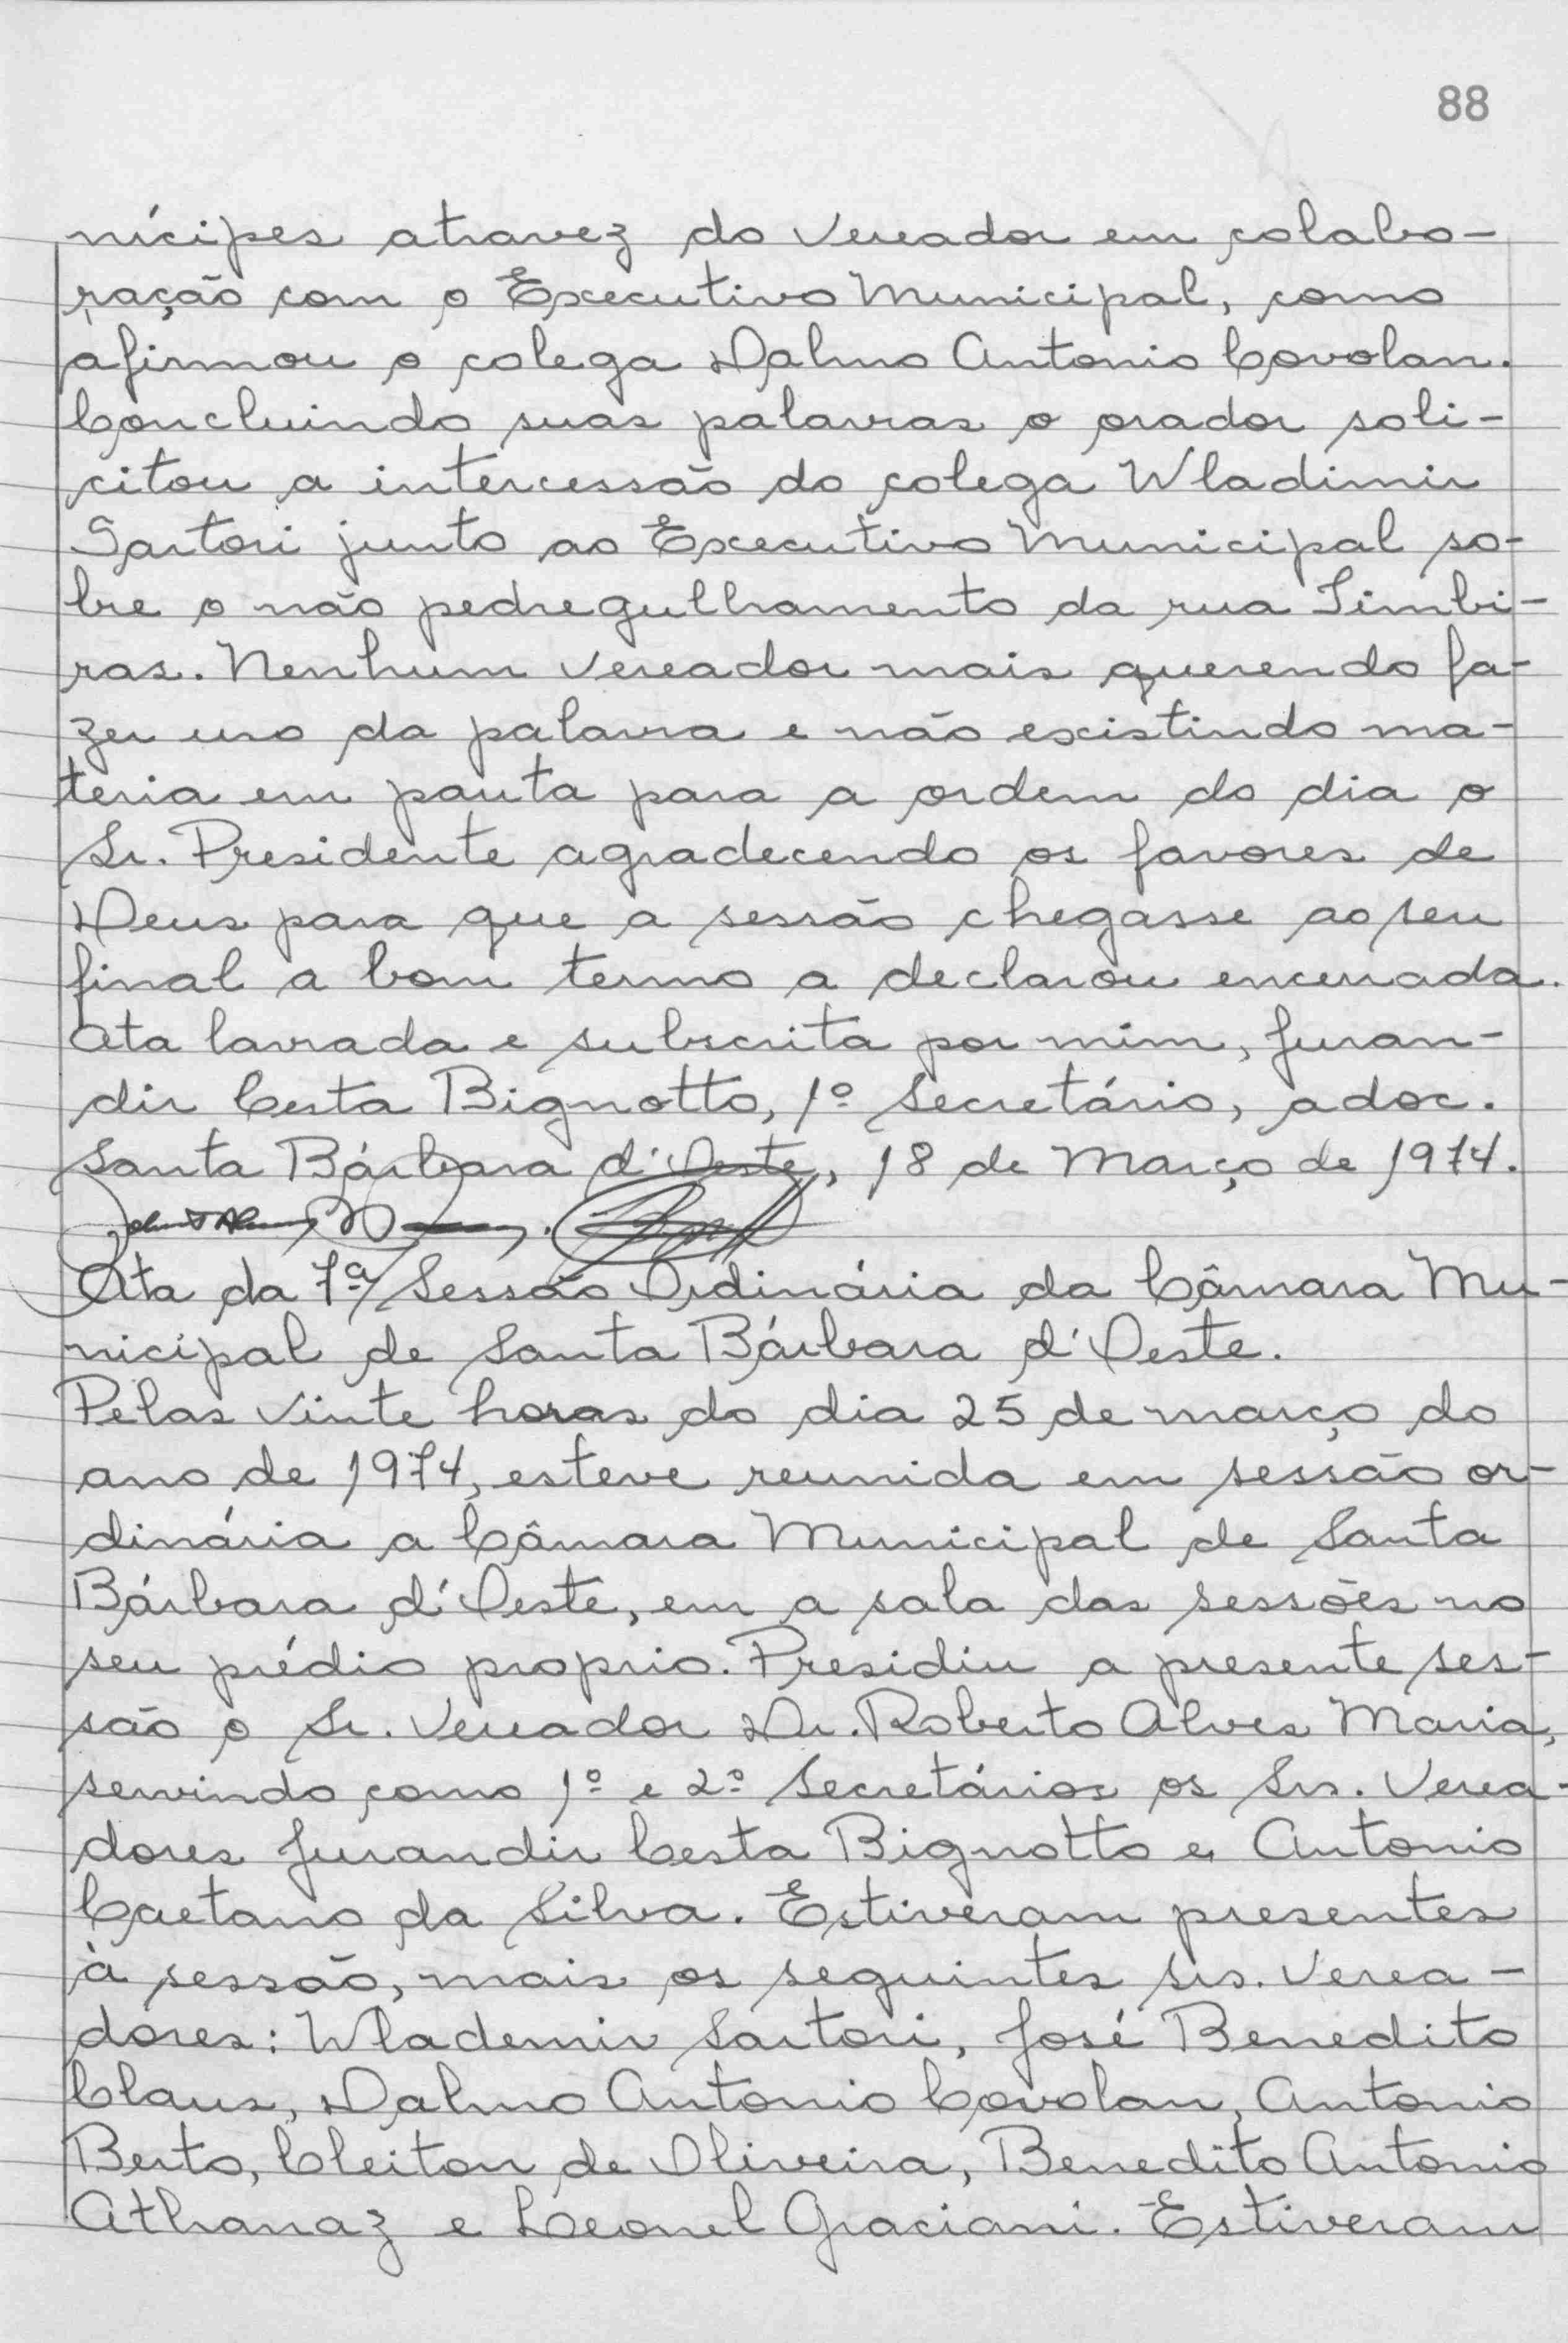 88
nícipes atravez do Vereador em colabo-
ração com o Executivo Municipal, como
afirmou o colega Dalmo Antonio Covolan.
Concluindo suas palavras o orador soli-
citou a intercessão do colega Wladimir
Sartori junto ao Executivo Municipal so-
bre o não pedregulhamento da rua Timbi-
ras. Nenhum Vereador mais querendo fa-
zer uso da palavra e não existindo ma-
teria em pauta para a ordem do dia o
Sr. Presidente agradecendo os favores de
Deus para que a sessão chegasse ao seu
final a bom termo a declarou encerrada.
Ata lavrada e subscrita por mim, Juran-
dir Certa Bignotto, 1º Secretário, adoc.
Santa Bárbara d'Oeste, 18 de Março de 1974.
Ata da 7ª Sessão Ordinária da Câmara Mu-
nicipal de Santa Bárbara d'Oeste.
Pelas vinte horas do dia 25 de março do
ano de 1974, esteve reunida em sessão or-
dinária a Câmara Municipal de Santa
Bárbara d'Oeste, em a sala das sessões no
seu prédio proprio. Presidiu a presente ses-
são o Sr. Vereador Dr. Roberto Alves Maria,
servindo como 1º e 2º Secretários os Srs. Verea-
dores Jurandir Certa Bignotto e Antonio
Caetano da Silva. Estiveram presentes
à sessão, mais os seguintes srs. Verea-
dores: Wlademir Sartori, José Benedito
Claus, Dalmo Antonio Covolan, Antonio
Berto, Cleiton de Oliveira, Benedito Antonio
Athanaz e Leonel Graciani. Estiveram